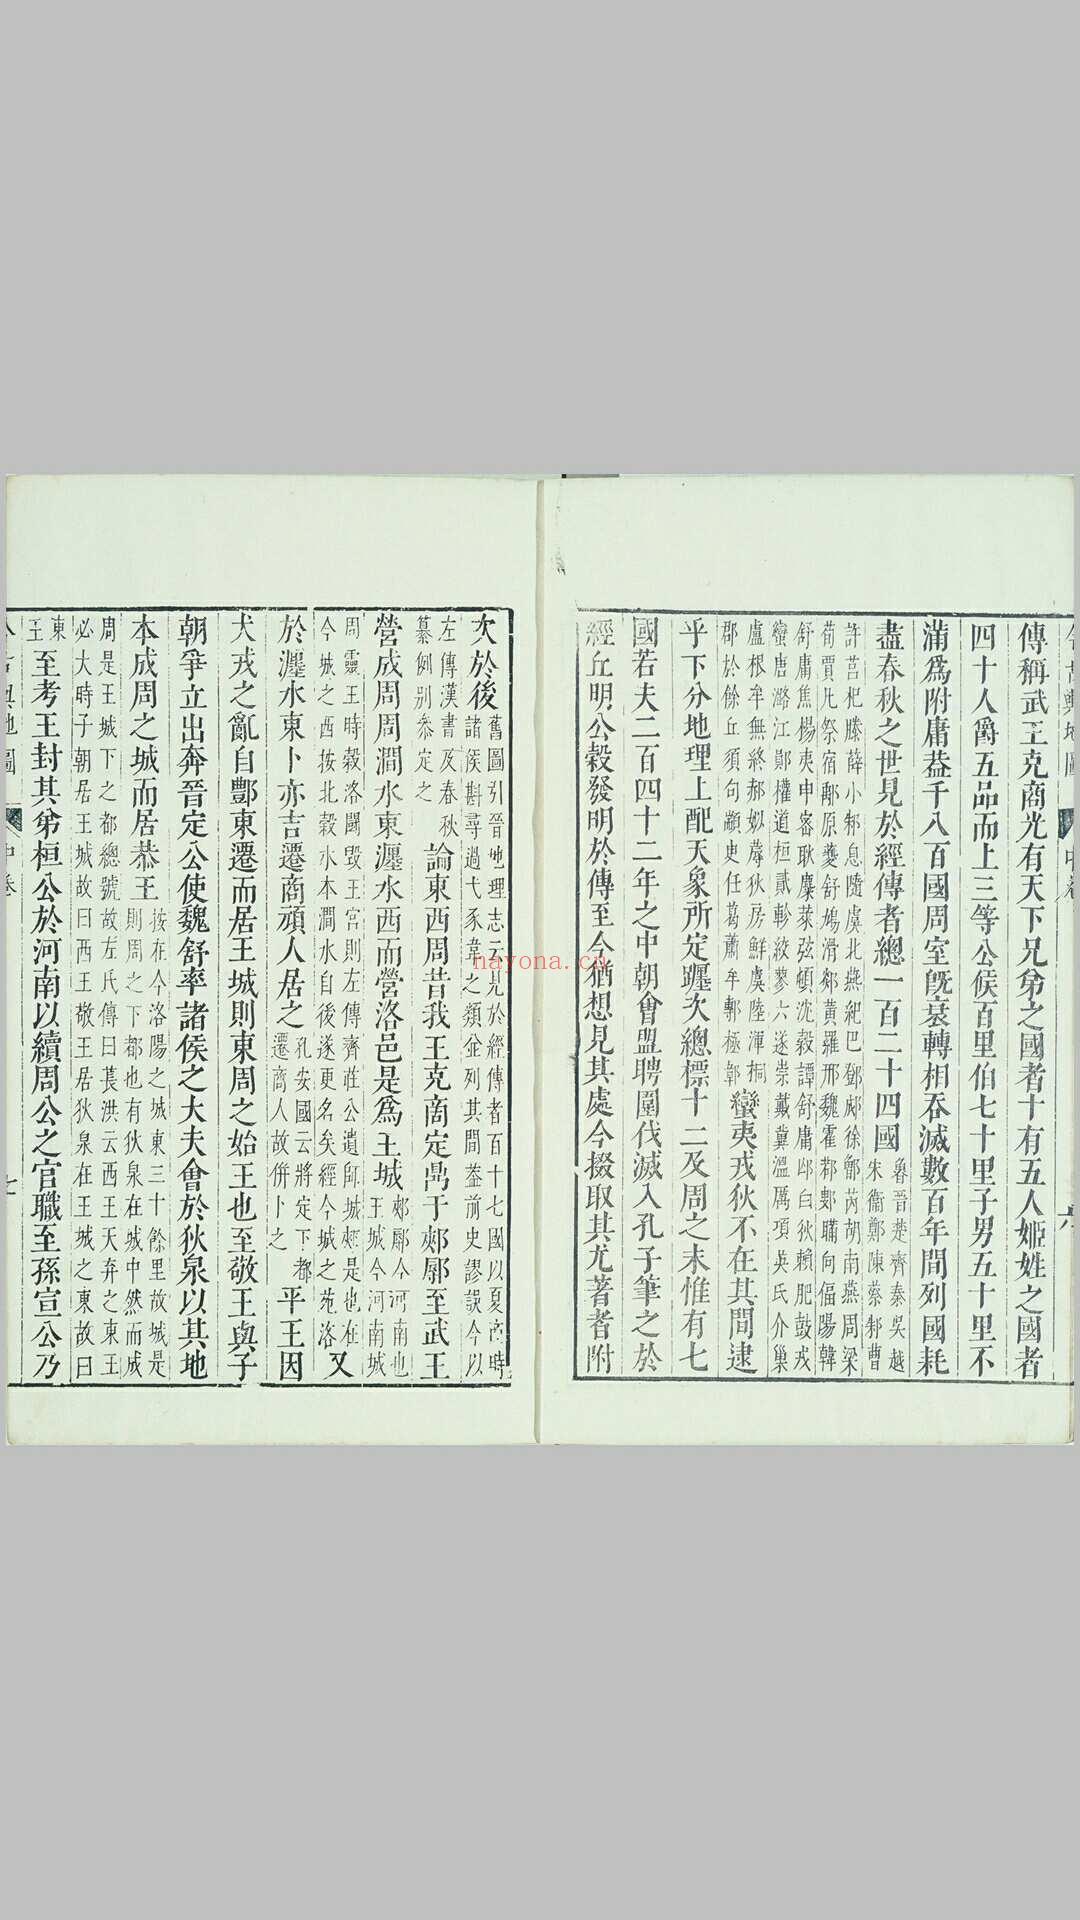 傳稱武王克商光有天下兄弟之國者十有五人姬姓之國者
四十人爵五品而上三等公侯百里伯七十里子男五十里不
滿爲附庸葢千八百國周室旣衰轉相吞滅數百年間列國耗
盡春秋之世見於經傳者總一百二十四國魯晉楚齊秦吳越
朱衞鄭陳蔡邾曹
許莒杞滕薛小邾息隨虞北燕紀巴鄧郕徐鄫芮胡南燕周梁
荀賈凡祭宿郮原夔舒鳩滑郯黃羅邢魏霍郜鄅聃向偪陽韓
舒庸焦楊夷申密耿麋萊弦頓沈穀譚舒庸邱白狄賴肥鼓戎
蠻唐潞江鄖權道桓貳軫絞蓼六遂崇戴冀溫厲項英氏介巢
盧根牟無終郝姒蓐狄房鮮虞陸渾桐
郡於餘丘須句顓臾任葛蕭牟鄟極鄣
蠻夷戎狄不在其間逮
乎下分地理上配天象所定躔次總標十二及周之末惟有七
國若夫二百四十二年之中朝會盟聘圍伐滅入孔子筆之於
經丘明公穀發明於傳至今猶想見其處今掇取其尤著者附
次於後舊圖引晉地理志云見於經傳者百十七國以夏商時
諸侯斟尋過弋豕韋之類並列其間葢前史謬誤今以
左傳漢書及春秋
纂例別叅定之
論東西周昔我王克商定鼎于郟鄏至武王
營成周周澗水東瀍水西而營洛邑是爲王城郟鄏今河南也
王城今河南城
周靈王時穀洛鬭毀王宮則左傳齊莊公遺師城郟是也在
今城之西按北穀水本澗水自後遂更名矣經今城之苑洛
又
於瀍水東卜亦吉遷商頑人居之孔安國云將定下都
遷商人故併卜之
平王因
犬戎之亂自酆東遷而居王城則東周之始王也至敬王與子
朝爭立出奔晉定公使魏舒率諸侯之大夫會於狄泉以其地
本成周之城而居恭王按在今洛陽之城東三十餘里故城是
則周之下都也有狄泉在城中然而成
周是王城下之都總號故左氏傳曰萇洪云西王天弃之東王
必大時子朝居王城故曰西王敬王居狄泉在王城之東故曰
東
王
至考王封其弟桓公於河南以續周公之官職至孫宣公乃
nayona.cn